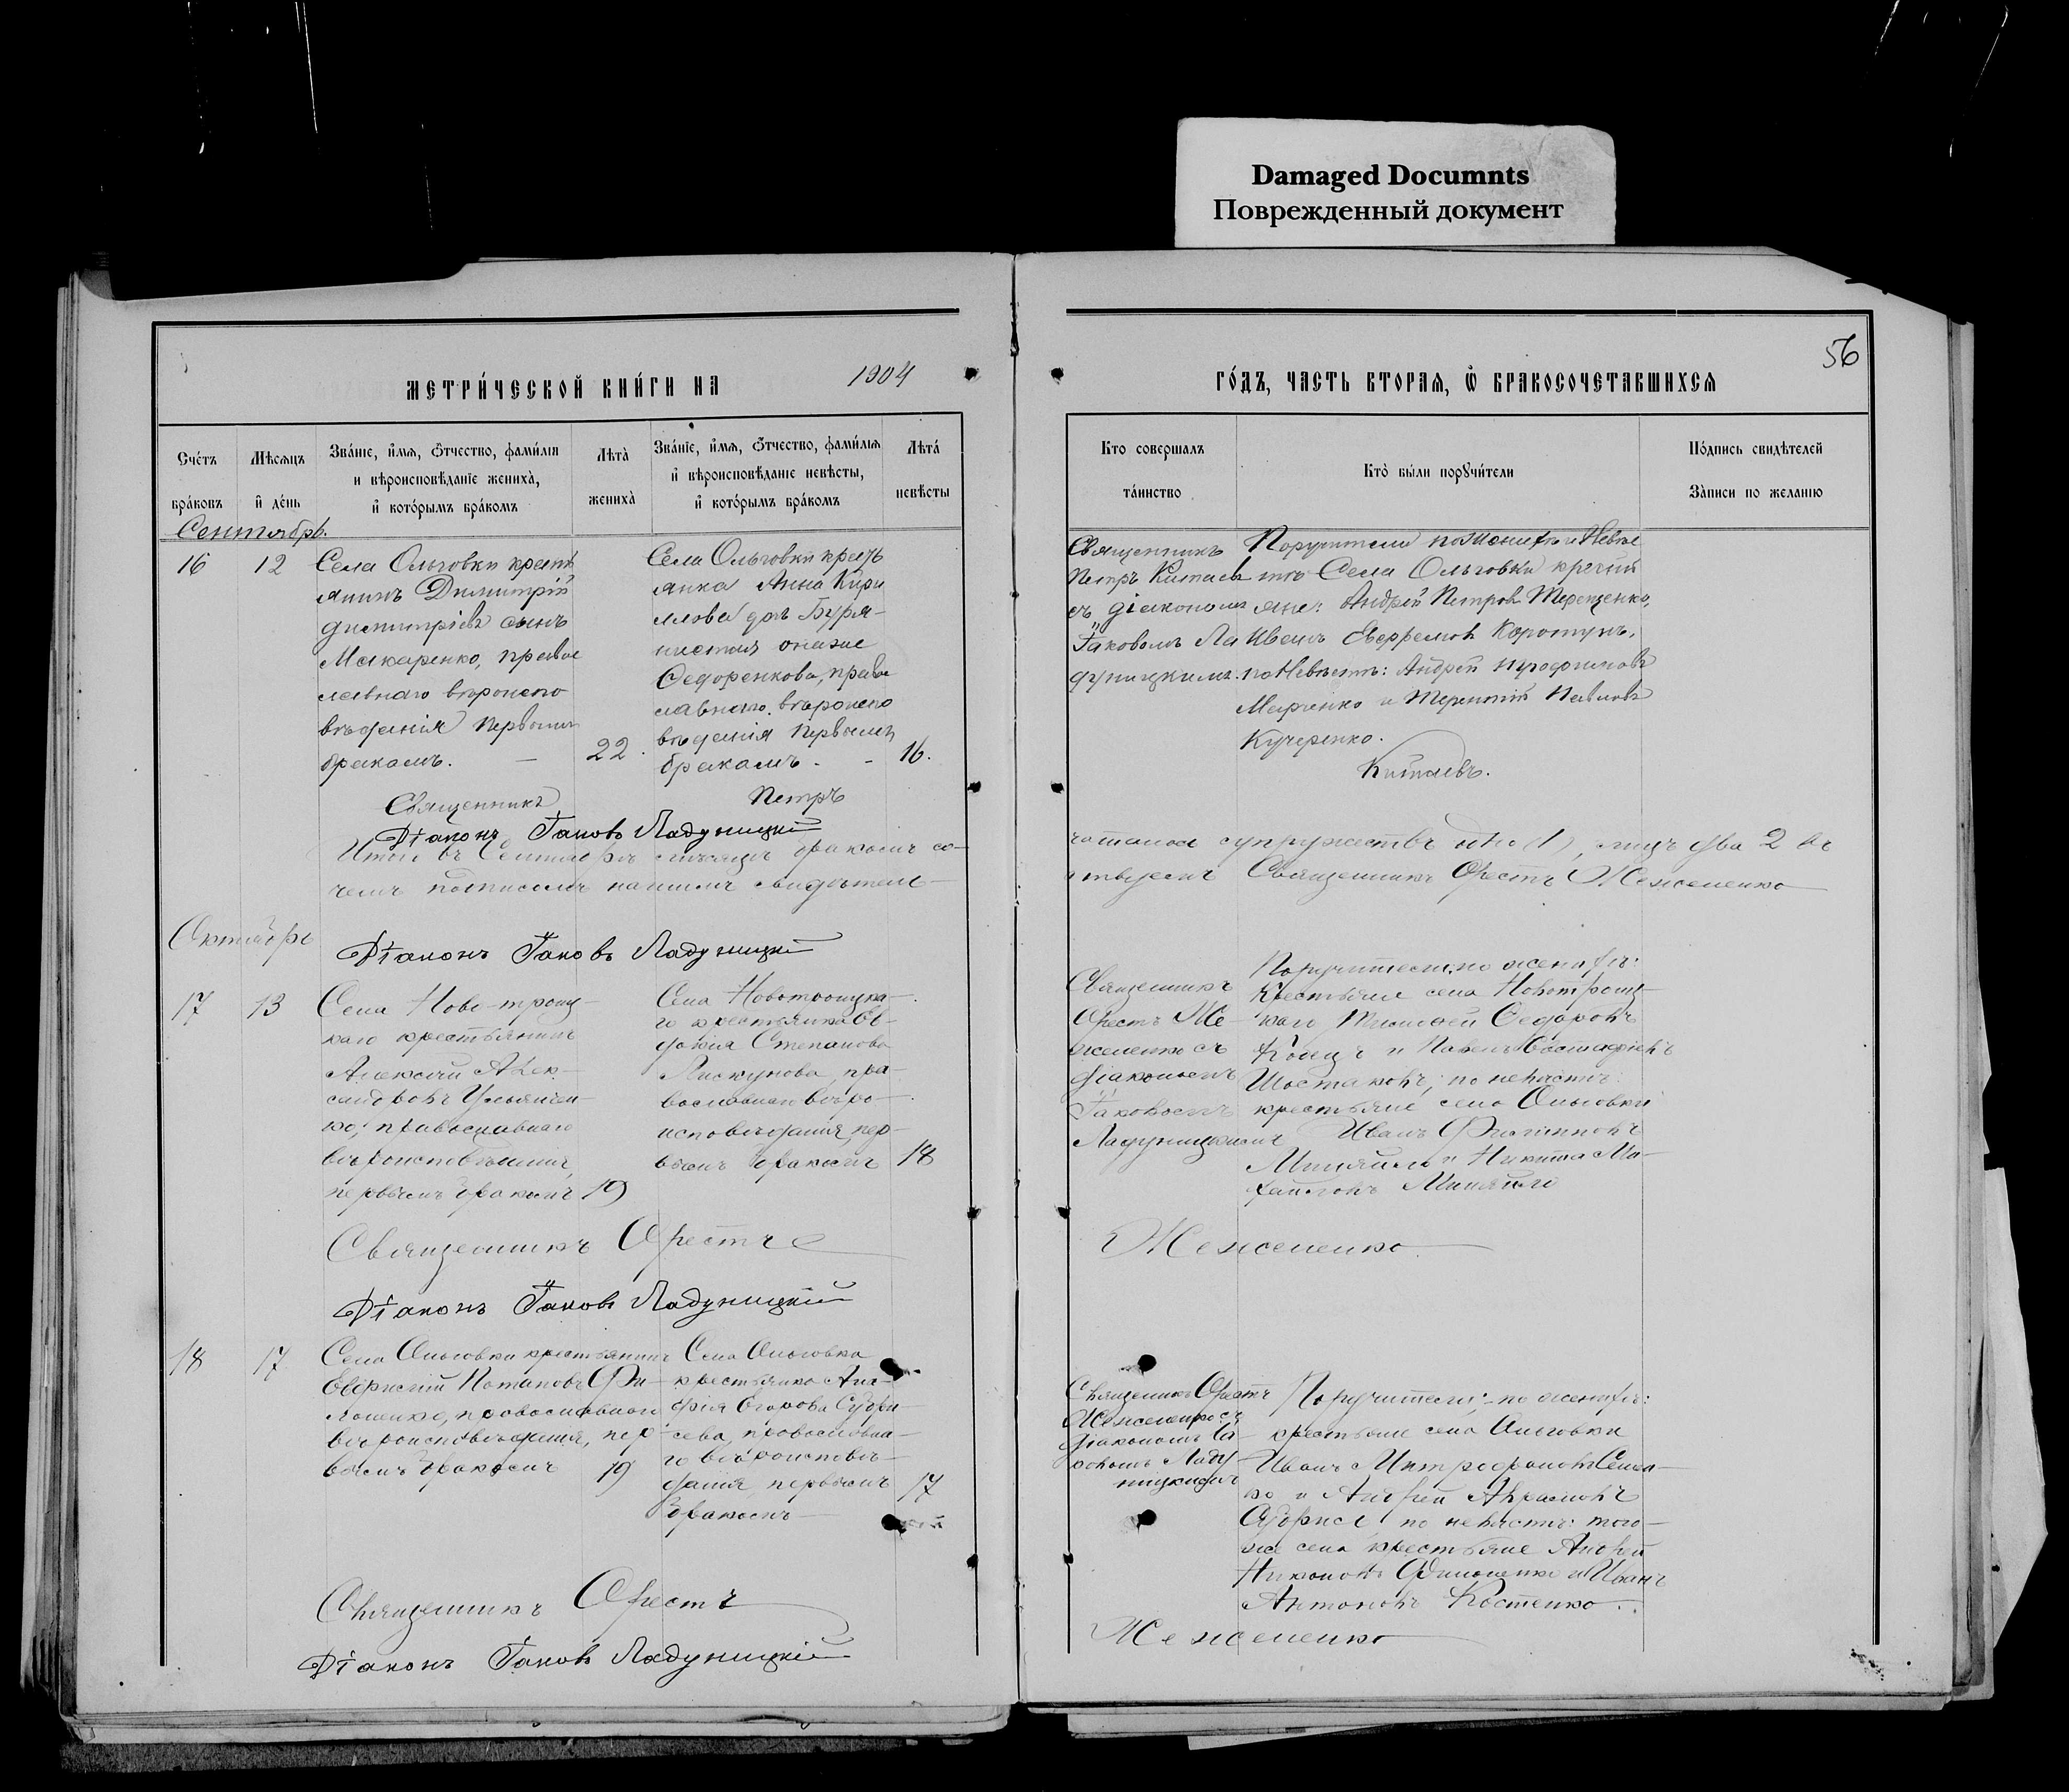 Damaged Documnts
Поврежденный документ
56
МЕТРИ́ЧЕСКОЙ КНИ́ГИ НА 1904
ГО́ДЪ, ЧАСТЬ ВТОРАѦ, Ѽ БРАКОСОЧЕТАВШИХСѦ
Сче́тъ бра́ковъ
Мѣсѧцъ и҆ де́нь
Зва́нїе, и҆́мѧ, ѻ҆́тчество, фами́лїѧ и вѣроисповѣ́данїе жениха̀, и҆ кото́рымъ бра́комъ
Лѣта̀ жениха̀
Зва́нїе, и҆́мѧ, ѻ҆́тчество, фами́лїѧ и҆ вѣроисповѣ́данїе невѣ́сты, и҆ кото́рымъ бра́комъ
Лѣта́ невѣ́сты
Кто соверша́лъ та́инство
Кто̀ бы́ли порꙋчи́тели
По́дпись свидѣ́телей За̀писи по жела́нїю
Сентябрь.
16
12
Села Ольговки кресть
янинъ Димитрій
Димитріевъ сынъ
Макаренко, право
славнаго вѣроиспо
вѣданія первымъ
бракомъ. —
22.
Села Ольговки кресть
янка Анна Кири
лова дочь Буря-
онаже
Федоренкова, право
славнаго вѣроиспо
вѣданія первымъ
бракомъ. -
16.
Священникъ
Петръ Китаевъ
съ діакономъ
Іаковомъ Ла
дуницкимъ.
Поручители по Женихѣ и Невѣс
тѣ Села Ольговки кресть

яне: Андрей Петровъ Терещенко,
Иванъ Евфремовъ Коротунъ,
по Невѣстѣ: Андрей
Марченко и Терентій Павловъ
Кучеренко.
Священникъ Петръ Китаевъ.
Діаконъ Іаковъ Ладуницкій
Итого въ Сентябрѣ мѣсяцѣ бракомъ со-
четалось супружествъ одно (1), лицъ два 2 въ
чемъ подписомъ нашимъ свидѣтель-
ствуемъ Священникъ Орестъ Жежеленко
Октябрь
Діаконъ Іаковъ Ладуницкій
17
13
Села Ново-троиц-
каго крестьянинъ
Алексѣй Алек-
сандровъ Ульянчен-
ко, православнаго
вѣроисповѣданія,
первымъ бракомъ
19
Села Новотроицка-
го крестьянка Ев-
докія Степанова
Пискунова, пра-
вославнаго вѣро-
исповѣданія, пер-
вымъ бракомъ
18
Священникъ
Орестъ Же-
желенко съ
діакономъ
Іаковомъ
Ладуницкимъ
Поручители: по женихѣ:
Крестьяне села Новотроиц-
каго Тимофей Федоровъ
и Павелъ Евстафіевъ
Шостаковъ; по невѣстѣ:
крестьяне села Ольговки
Иванъ Филипповъ
Миняйло и Никита Ми-
хайловъ Миняйло
Священникъ Орестъ Жежеленко
Діаконъ Іаковъ Ладуницкій
18
17
Села Ольговки крестьянинъ
Евфимій Потаповъ Фи-
лоненко, православнаго
вѣроисповѣданія, пер-
вымъ бракомъ
19
Села Ольговка
крестьянка Ага-
фія Егорова
православна-
го вѣроисповѣ-
данія первымъ
бракомъ
17
Священникъ Орестъ
Жежеленко съ
діакономъ Іа-
ковомъ Ладу
ницкимъ
Поручители: - по женихѣ:
крестьяне села Ольговки
Иванъ Митрофановъ Семен-
ко и Андрей Аврамовъ
по невѣстѣ: того-
же села крестьяне Андрей
Никоновъ Филоненко и Иванъ
Антоновъ Костенко.
Священникъ Орестъ Жежеленко
Діаконъ Іаковъ Ладуницкій